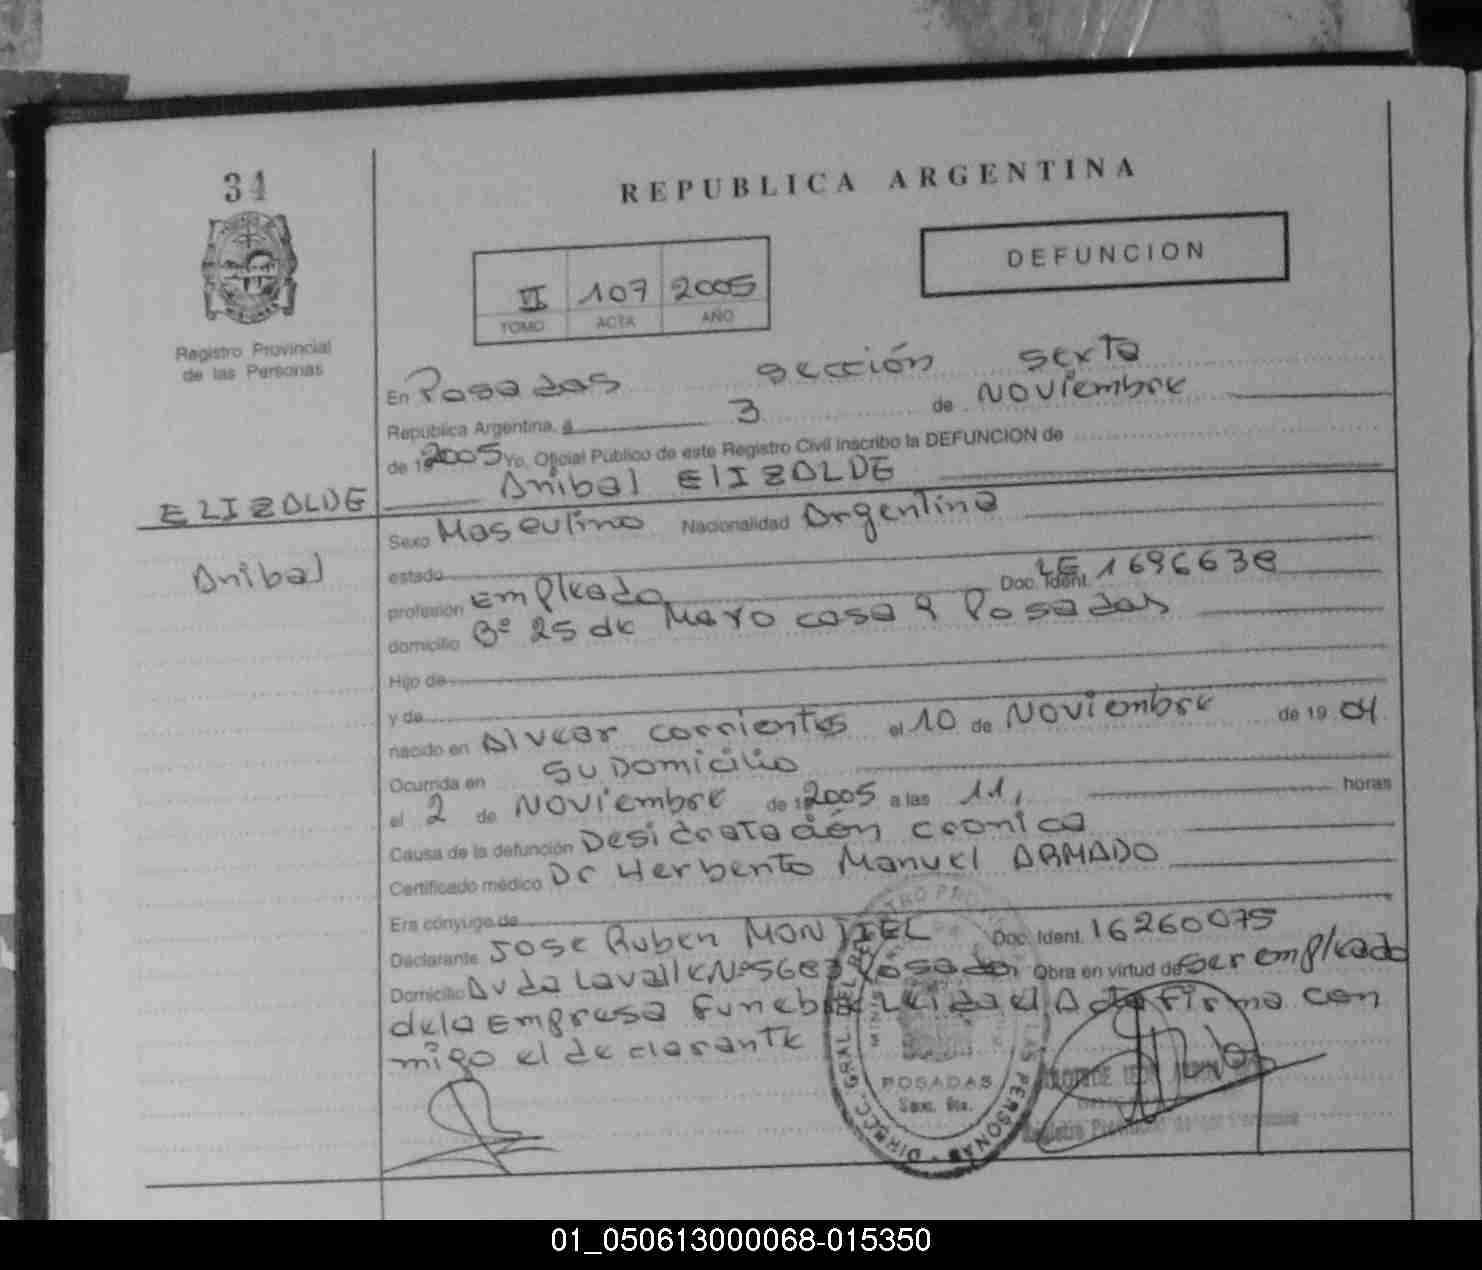 34
REPUBLICA ARGENTINA
DEFUNCION
VI 107 2005
TOMO ACTA AÑO
Registro Provincial
de las Personas
En Posadas sección sexta
República Argentina, a 3 de Noviembre
de 1 2005 Yo, Oficial Público de este Registro Civil Inscribo la DEFUNCION de
Anibal ELIZALDE
ELIZALDE
Anibal
Sexo Masculino Nacionalidad Argentina
estado
profesión Empleado Doc. Ident. LE 1696638
domicilio Bº 25 de Mayo casa 9 Posadas
Hijo de
y de
nacido en Alvear corrientes el 10 de Noviembre de 19 04
Ocurrida en su Domicilio
el 2 de Noviembre de 1 2005 a las 11, horas
Causa de la defunción Desidratación cronica
Certificado médico Dr Herbento Manuel ARMADO
Era cónyuge de
Declarante Jose Ruben MONTIEL Doc. Ident. 16260075
Domicilio Avda Lavalle Nº 5683 Posadas Obra en virtud de ser empleado
de la Empresa Funebre Leida el Acta Firma con
migo el declarante
DIRECC. GRAL. DEL REGISTRO PROV. DE LAS PERSONAS
POSADAS
Secc. 6ta.
Registro Provincial de las Personas
01_050613000068-015350